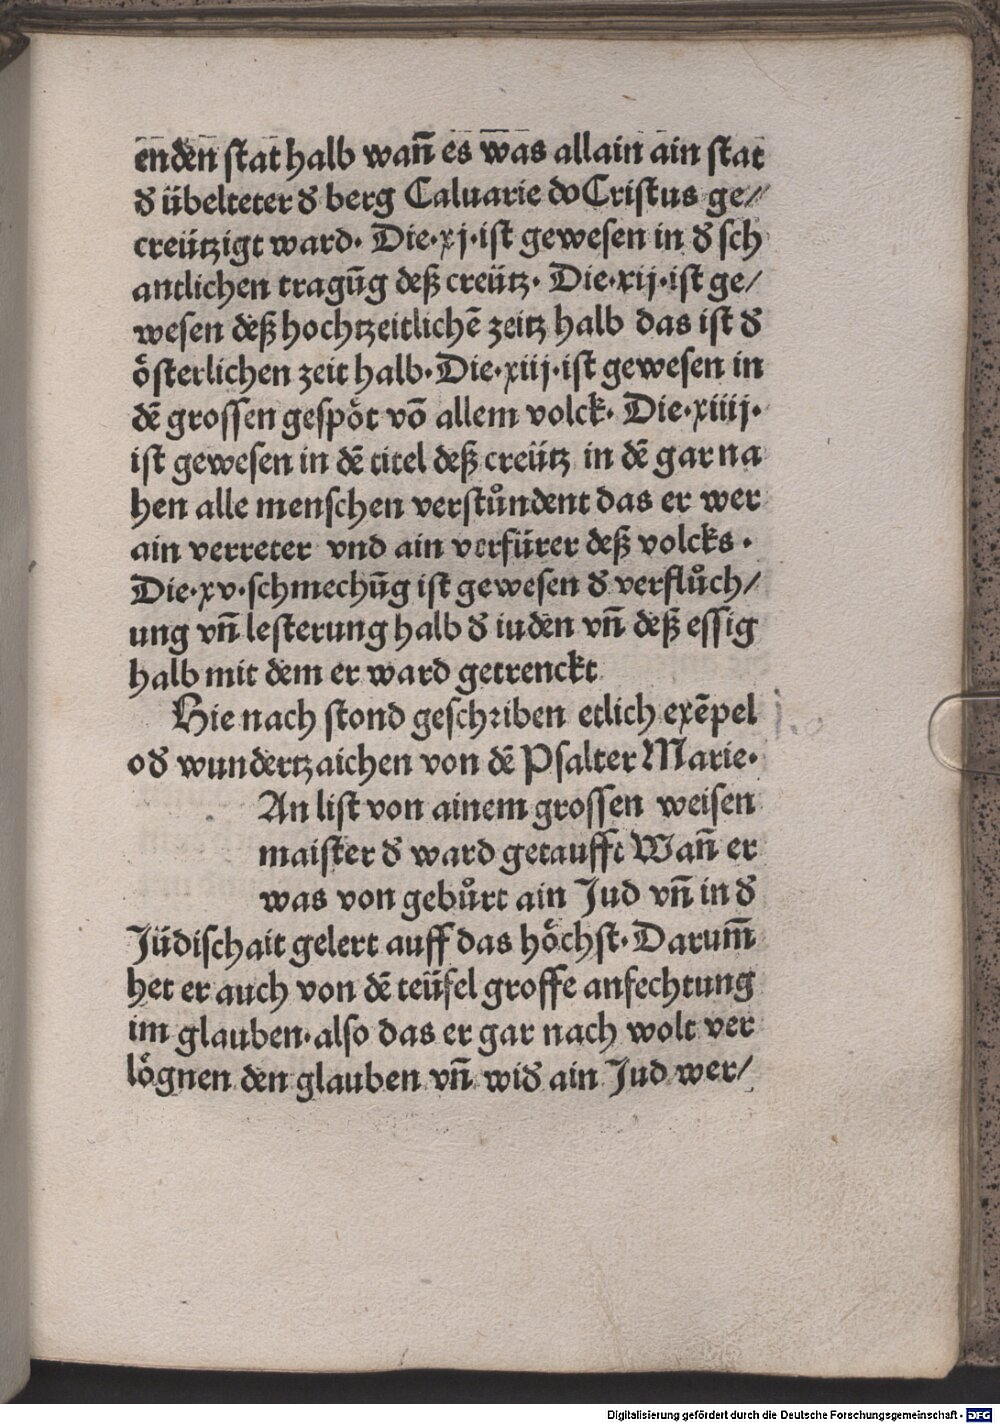 enden stat halb wañ es was allain ain stat
d̕ übelteter d̕ berg Caluarie do Cristus ge⸗
creützigt ward. Die.xj.ist gewesen in d̕ sch
antlichen tragūg deß creütz. Die.xij.ist ge/
wesen deß hochtzeitlichē zeitz halb das ist d̕
österlichen zeit halb. Die.xiij.ist gewesen in
dē grossen gespöt vō allem volck. Die.xiiij.
ist gewesen in dē titel deß creütz in dē gar na
hen alle menschen verstůndent das er wer
ain verreter vnd ain verfürer deß volcks.
Die.xv.schmechūg ist gewesen d̕ verflůch/
ung vñ lesterung halb d̕ iuden vñ deß essig
halb mit dem er ward getrenckt
Hie nach stond geschriben etlich exēpel
od̕ wundertzaichen von dē Psalter Marie.
An list von ainem grossen weisen
maister d̕ ward getaufft Wañ er
was von gebůrt ain Jud vñ in d̕
Jüdischait gelert auff das höchst. Darum̄
het er auch von dē teüfel grosse anfechtung
im glauben.also das er gar nach wolt ver
lögnen den glauben vñ wid̕ ain Jud wer/
Digitalisierung gefördert durch die Deutsche Forschungsgemeinschaft - DFG